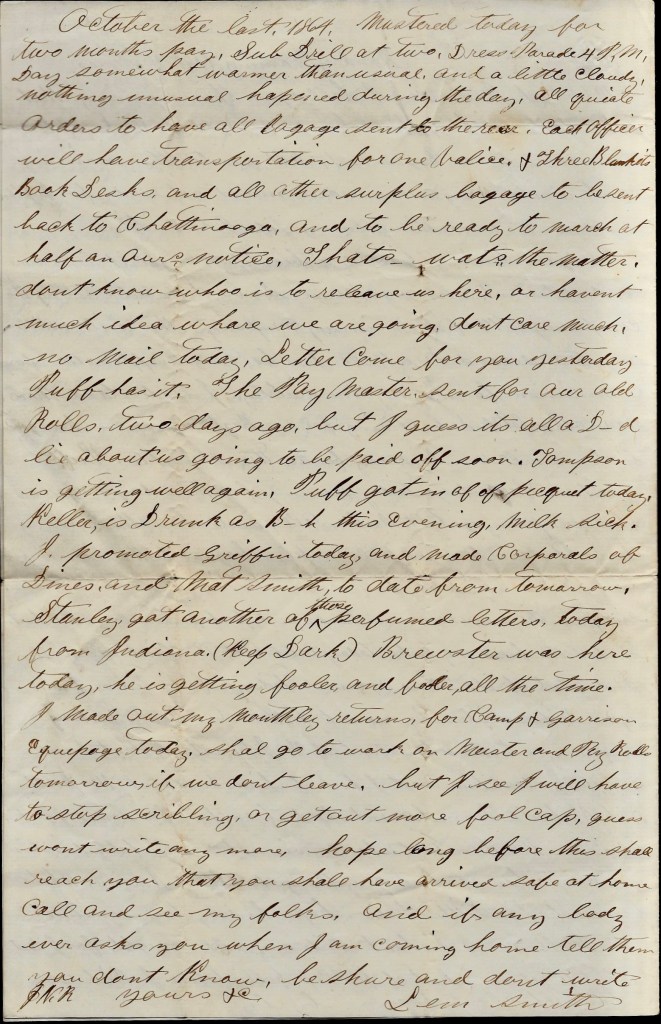 October the last, 1864, Mustered today for
two months pay, Sub Drill at two, Dress Parade 4 P, M,
Day somewhat warmer than usual, and a little cloudy,
nothing unusual hapened during the day, all quiate
Orders to have all bagage sent to the rear. Each Officer
will have transportation for one Valice, & Three Blankits
Book Desks, and all other surplus bagage to be sent
back to Chattinooga, and to be ready to march at
half an ours notice, Thats wats the matter.
dont know whoo is to releave us here, or havent
much idea whare we are going, dont care much,
no Mail today, Letter Come for you yesterday
Puff has it. The Pay Master, sent for our old
Rolls, two days ago, but I guess its all a D-d
lie about us going to be paid off soon. Tompson
is getting well again, Puff got in of of picquet today,
Keller, is Drunk as B-h this evening, Milk sick.
I. promoted Griffin today, and made Corporals of
Dines, and Mat Smith, to date from tomorrow,
Stanley, got another of those perfumed letters, today
from Indiana. (Keep Dark) Brewster was here
today, he is getting fooler, and fooler, all the time.
I made out my Monthley returns, for Camp & Garrison
Equepage today, shal go to work on Muster and Pay Rolls
tomorrow, if we dont leave, but I see I will have
to stop scribling, or get out more fool cap, guess
wont write any more, hope long before this shall
reach you that you shall have arrived safe at home
Call and see my folks, And if any body
ever asks you when I am coming home tell them
you dont Know, be shure and dont write
yours &c Lem Smith